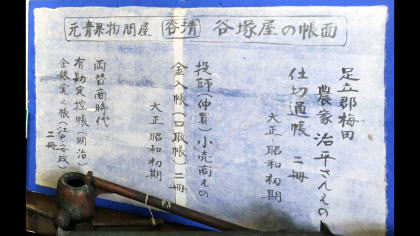 谷塚屋の帳面
谷清
元青果物問屋
足立郡梅田
農家 治平さんえの
仕切通帳 二冊
大正 昭和初期
投師(仲買)小売商えの
金入帳(口取帳)二冊
大正 昭和初期
両替商時代
有勘定控帳(明治)
金銀覚え帳(江戸安政)
二冊